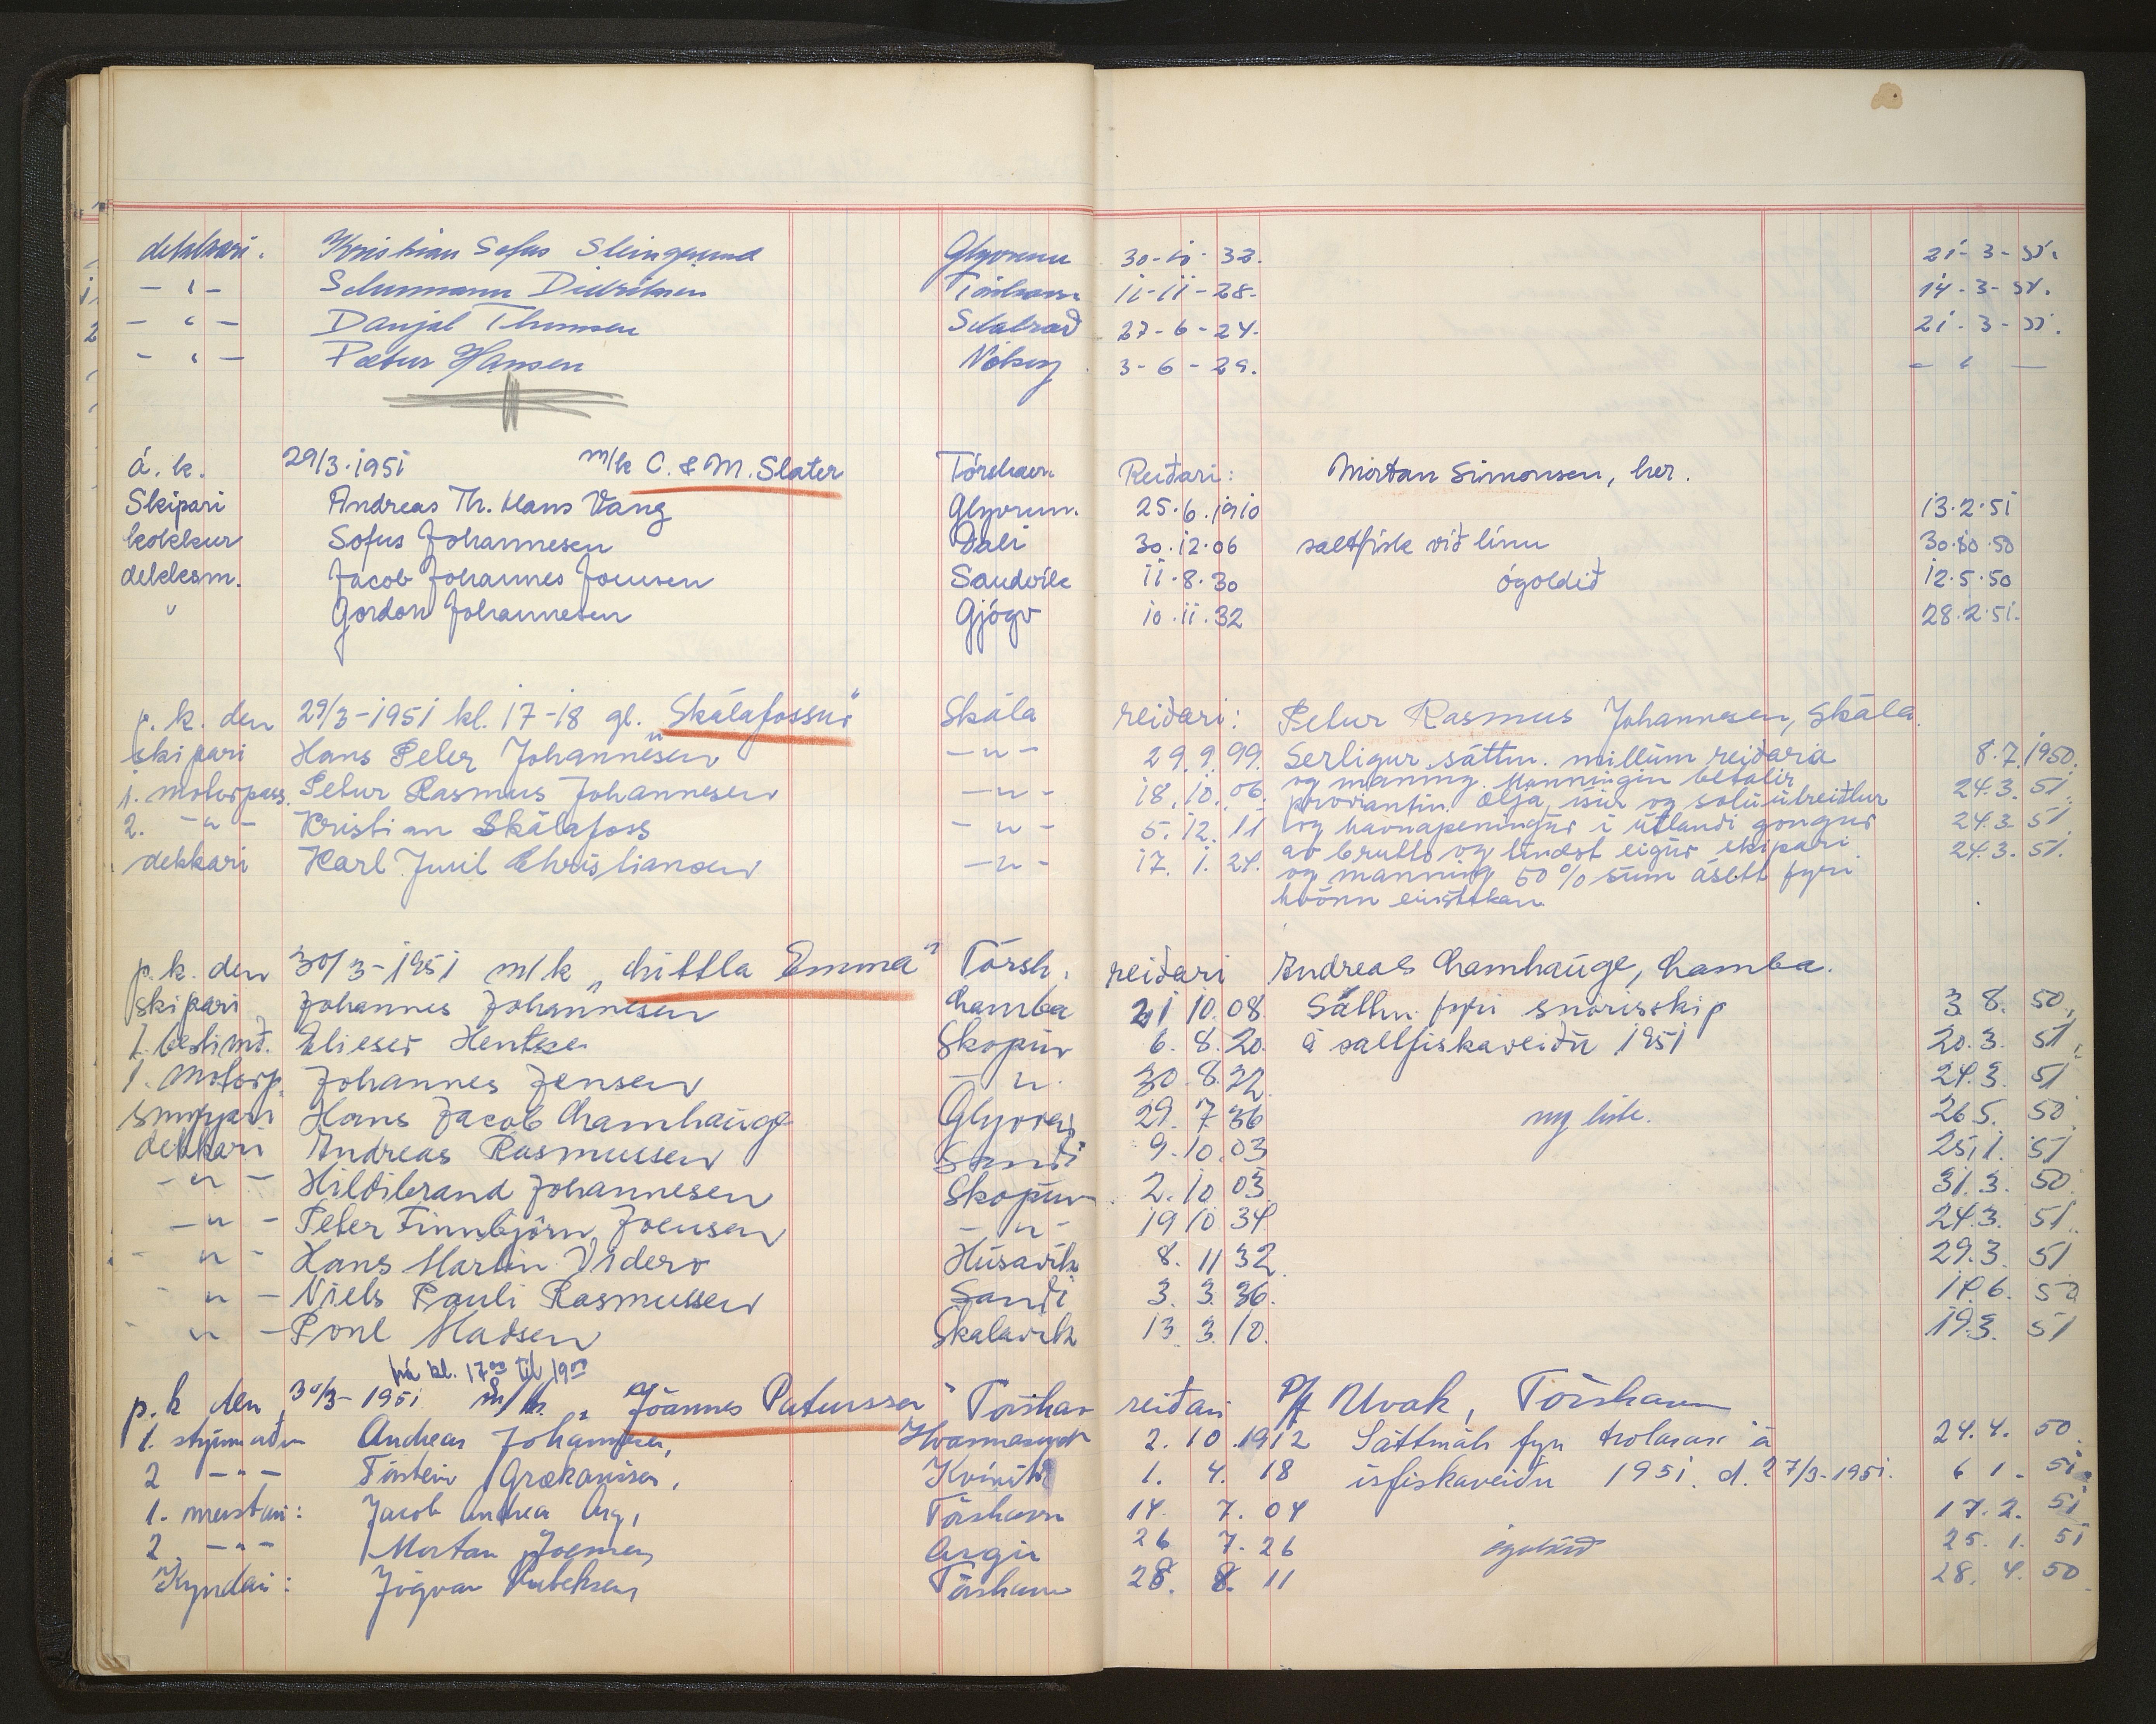 dekkari. Kristian Sofus Steingrund Glyvrum 30-10-32. 21-3-51.
- " - Schumann Didriksen Tórshavn 11-11-28. 14-3-51.
- " - Danjal Thomsen 27-6-24. 21-3-51.
- " - Pætur Hansen 3-6-29. - " -
á. k. 29/3.1951 m/k C. & M. Slater Tórshavn Reiðari: Mortan Simonsen, her.
Skipari Andreas Th. Hans Vang Glyvrum. 25.6.1910 13.2.51
kokkur Sofus Johannesen Dali 30.12.06 saltfisk við línu 30.10.50
dekksm. Jacob Johannes Joensen Sandvík 11.8.30 ógoldið 12.5.50
" Gordon Johannesen Gjógv 10.11.32 28.2.51.
p. k. den 29/3-1951 kl. 17-18 gl. "Skálafossur" Skála reiðari: Petur Rasmus Johannesen, Skála.
skipari Hans Peter Johannesen -"- 29.9.99. Serligur sáttm. millum reiðaria 8.7.1950.
1. motorpass. Petur Rasmus Johannesen -"- 18.10.06. og manning. Manningin betalir 24.3.51.
2. -"- Kristian Skálafoss -"- 5.12.11 proviantin. Olja, ísur og soluútreiðlur 24.3.51
dekkari Karl Juul Christiansen -"- 17.1.24. og havnapeningur í útlandi gongur 24.3.51.
av brutto og tindst eigur skipari
og manning 50% sum ásett fyri
hvönn einstakan
p.k. den 30/3-1951 m/k "Littla Emma" Tórsh. reiðari Andreas Lamhauge, Lamba.
skipari Johannes Johannesen Lamba 21 10.08. Sáttm. fyri snørisskip 3.8.50.
1. bestimð. Elieser Hentze Skopun 6.8.20. á saltfiskaveiðu 1951 20.3.51.
1. motorp. Johannes Jensen -"- 30.8.22. 24.3.51
Hans Jacob Lamhauge Glyvrar 29.7 36 ny liste. 26 5.50
dekkari Andreas Rasmussen Sandi 9.10.03 25.1.51
-"- Hildibrand Johannesen Skopun 2.10 03. 31.3.50.
-"- Peter Finnbjörn Joensen -"- 19 10 34. 24.3.51.
-"- Hans Martin Viderø Húsavík 8.11 32. 29.3.51
-"- Niels Pauli Rasmussen Sandi 3.3.36. 18.6.50
-"- Poul Madsen Skálavík 13 3.10. 19.3.51
frá kl. 17⁰⁰ til 19⁰⁰
p.k den 30/3-1951 m/k. "Jóannes Patursson" Tórshav reiðari P/f Uvak, Tórshavn
1. stýrimaður Andreas Johannesen, Hvannasund 2.10.1912 Sáttmáli fyri trolarar á 24.4.50
2 -"- Kvívík 1.4.18 ísfiskaveiðu 1951. d. 27/3-1951. 6 1.51
1. meistari: Jacob Andreas Arge, Tórshavn 14. 7.04 17.2.51
2. -"- Mortan Joensen Argir 26 7.26 ógoldið 25.1.51
Kyndari: Jógvan Rubeksen, Tórshavn 28. 8. 11 28. 4. 50.